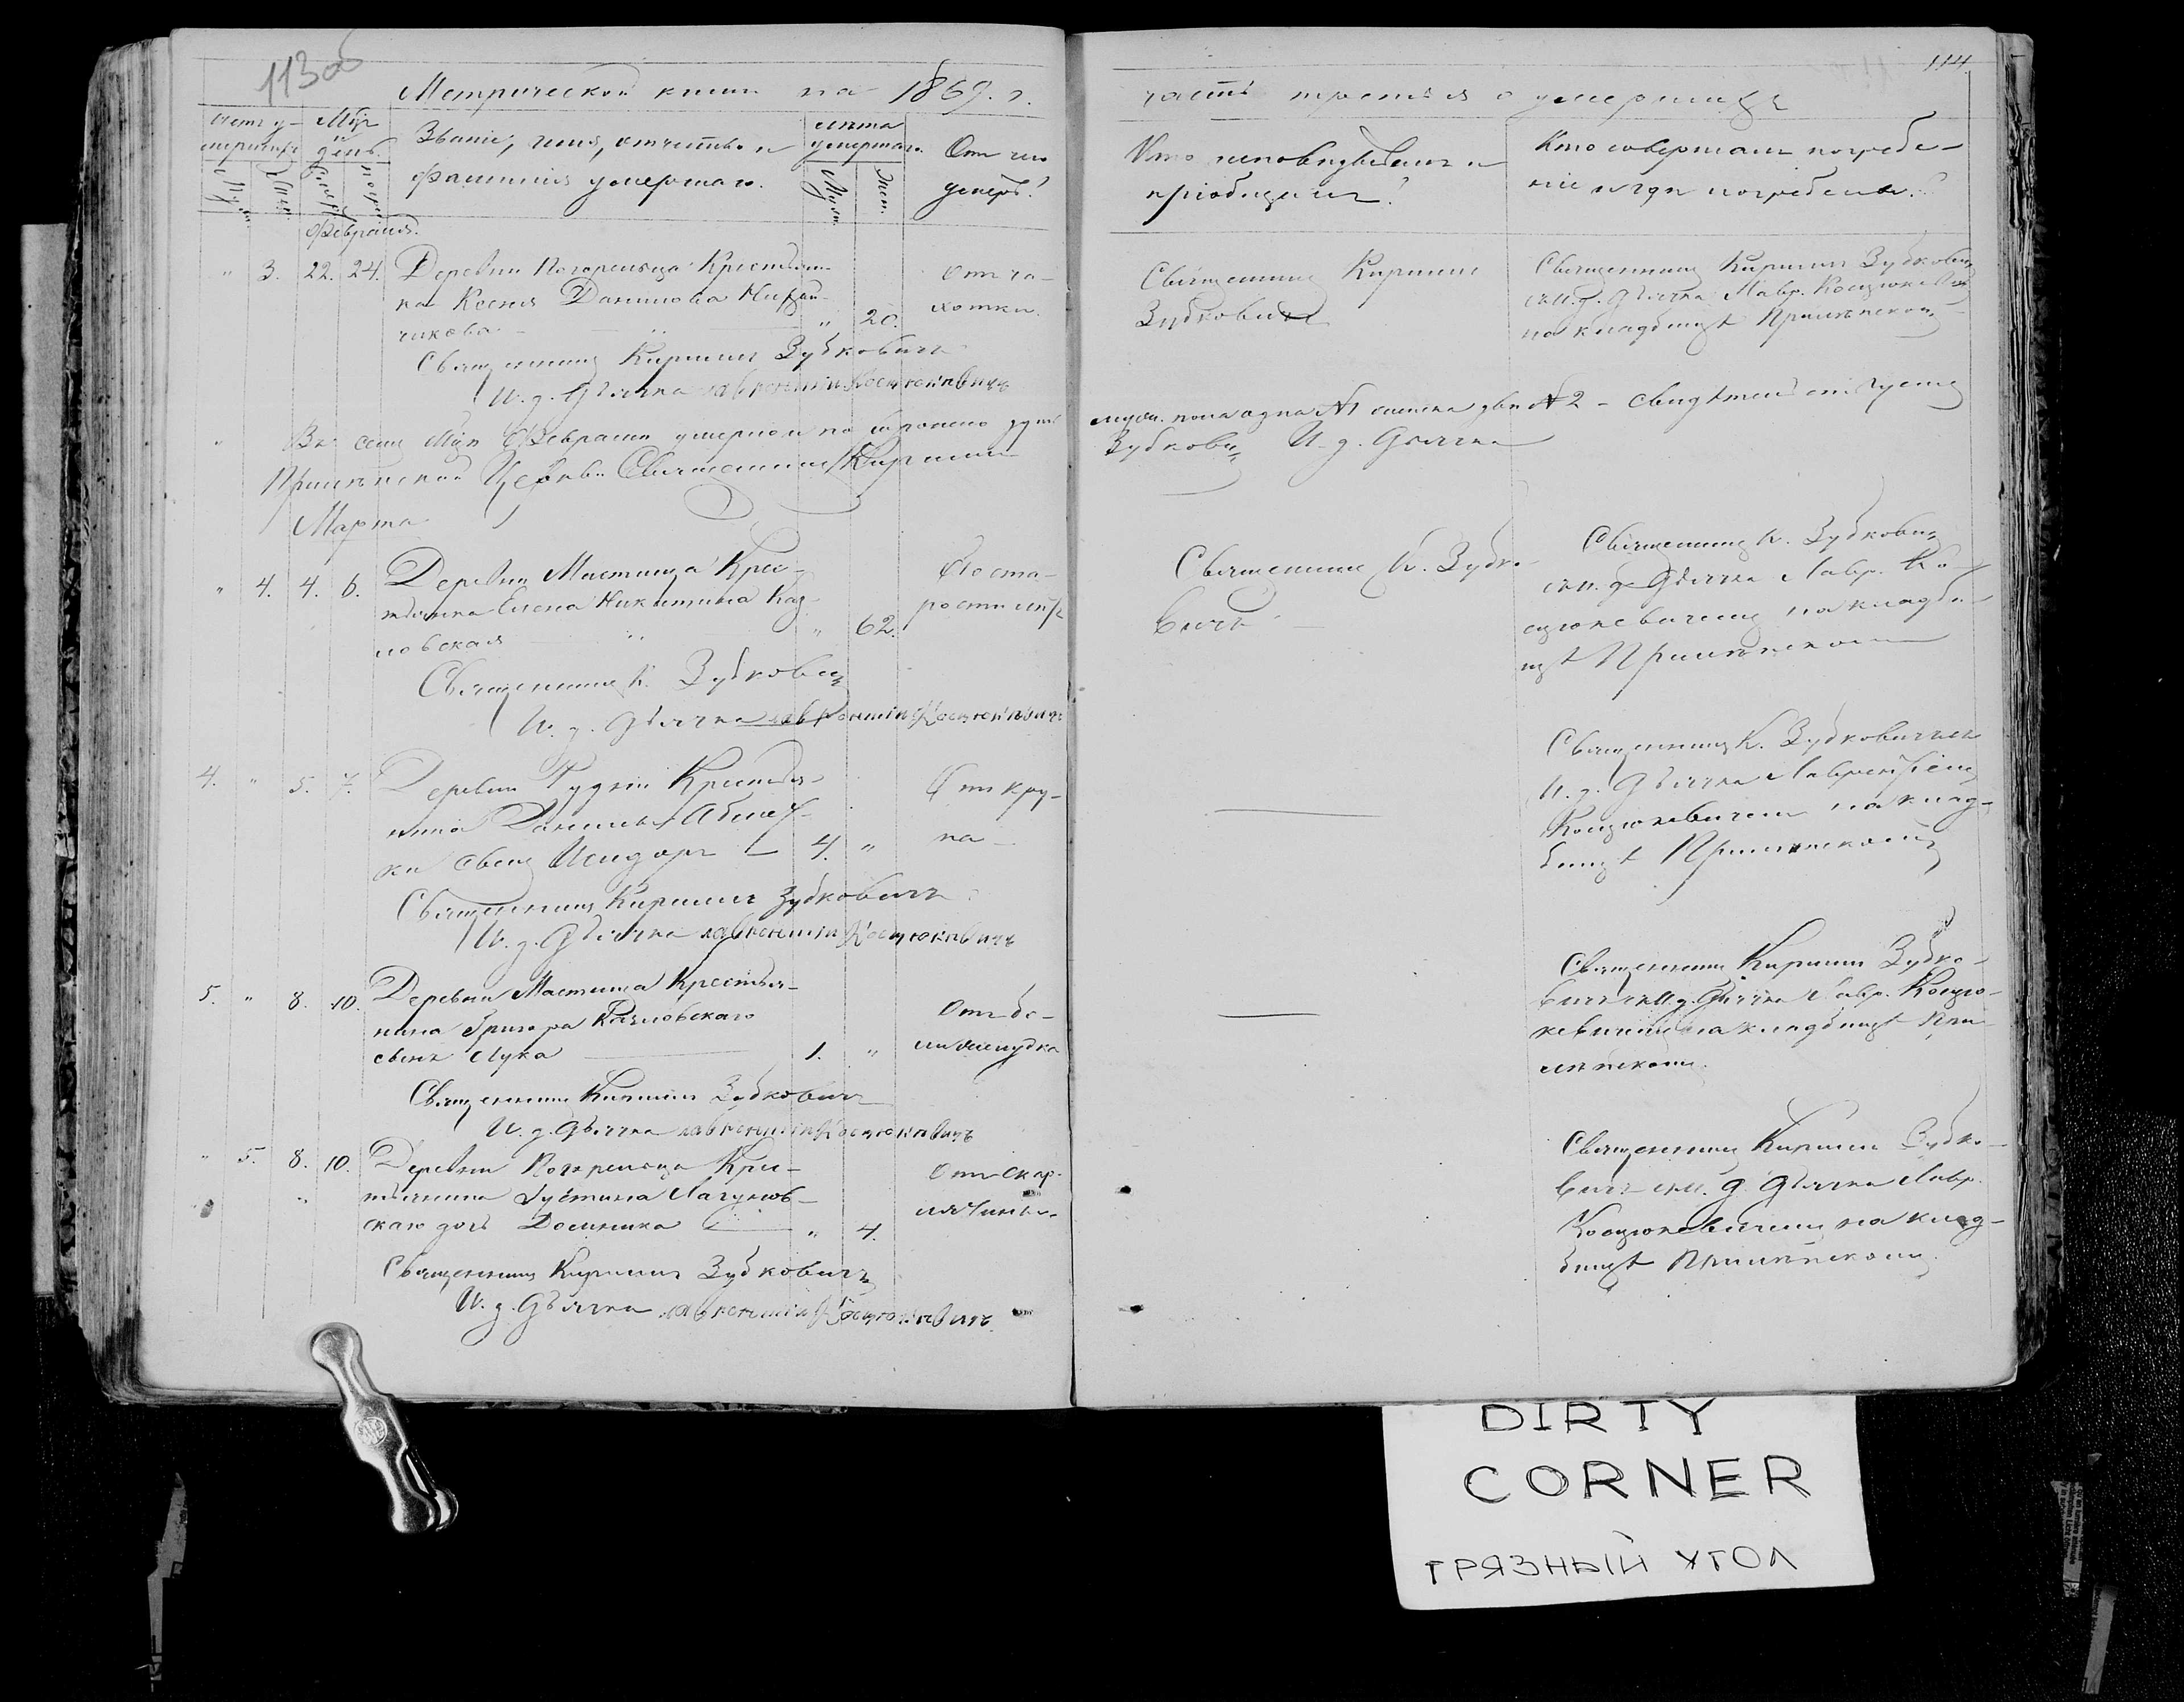 113об
Метрической книги на 1869. г.
Счетъ у-
мершихъ
Муж.
Жен.
Мцъ
и
день.
Звание, имя, отчество и
фамилия умершаго.
лѣта
умершаго.
Муж.
Жен.
Отъ чего
умеръ?
Февраля.
" 3. 22. 24. Деревни Погорельца Крестьян-
ка Ксения Данилова
чикова " 20.
Отъ ча-
хотки.
Священникъ Кириллъ Зубковичъ
И. д. Дьячка Лаврентій Косцюкевичъ
" Въ семъ Мцѣ Февралѣ умерло и похоронено душъ
Церкви Священникъ Кириллъ
Марта
" 4. 4. 6. Деревни Мастища Крес-
тьянка Елена Никитина Каз-
ловская " 62.
По ста-
рости лѣтъ
Священникъ К. Зубковичъ
И. д. Дьячка Лаврентій Косцюкевичъ
4. " 5. 7. Деревни Рудни Крестья-
нина Данилы
ки сынъ Исидоръ — 4. "
Отъ кру-
па
Священникъ Кириллъ Зубковичъ
И. д. Дьячка Лаврентій Косцюкевичъ
5. " 8. 10. Деревни Мастища Крестья-
нина Григора Казловскаго
сынъ Лука 1. "
Отъ бо-
ли желудка
Священникъ Кириллъ Зубковичъ
И. д. Дьячка Лаврентій Косцюкевичъ
" 5. 8. 10. Деревни Погорельца Крес-
тьянина Густина Лагунов-
скаго дочь Домника " 4.
Отъ скар-
лятины.
Священникъ Кириллъ Зубковичъ
И. д. Дьячка Лаврентій Косцюкевичъ
114
часть третья о умершихъ
Кто исповѣдывалъ и
приобщалъ?
Кто совершалъ погребе-
ніе и гдѣ погребены?
Священникъ Кирилл
Зубковичъ
Священникъ Кириллъ Зубковичъ
съ И. д. Дьячка Лавр. Косцюкевич
на кладбищѣ
муж. пола одна №1 женска двѣ №2 - свидѣтельствуемъ
Зубковичъ И. д. Дьячка
Священникъ К. Зубко-
вичъ
Священникъ К. Зубковичъ
съ И. д. Дьячка Лавр. Ко-
сцюкевичемъ на кладби-
щѣ
Священникъ К. Зубковичъ съ
И. д. Дьячка Лаврентіемъ
Косцюкевичемъ на клад-
бищѣ
Священникъ Кириллъ Зубко-
вичъ съ И. д. Дьячка Лавр. Косцю-
кевичемъ на кладбищѣ
Священникъ Кириллъ Зубко-
вичъ съ И. д. Дьячка Лавр.
Косцюкевичемъ на клад-
бищѣ
DIRTY
CORNER
ГРЯЗНЫЙ УГОЛ